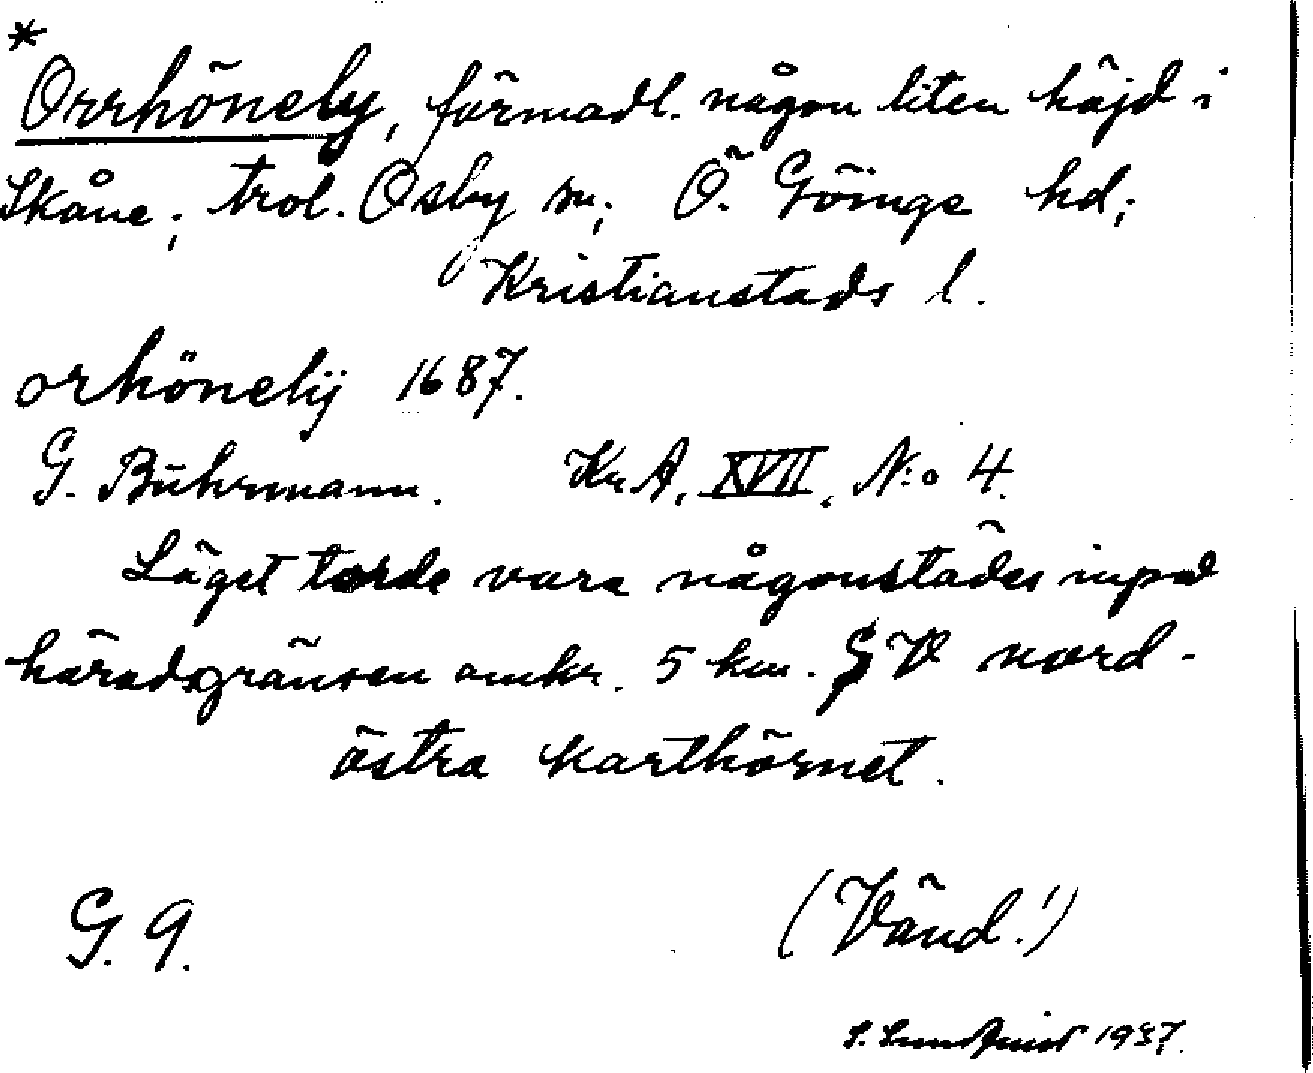 *
Orrhönely, förmodl. någon liten höjd i
Skåne; trol. Osby sn; Ö. Göinge hd;
Kristianstads l.
orhönelÿ 1687.
G. Buhrmann. Kr.A. XVII. N:o 4.
Läget torde vara någonstädes inpå
häradsgränsen omkr. 5 km. SV nord-
östra karthörnet.
G. 9. (Vänd!)
S. Lundquist 1937.